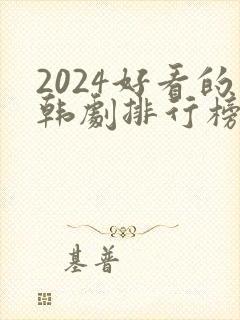 2024好看的
韩剧排行榜
基普